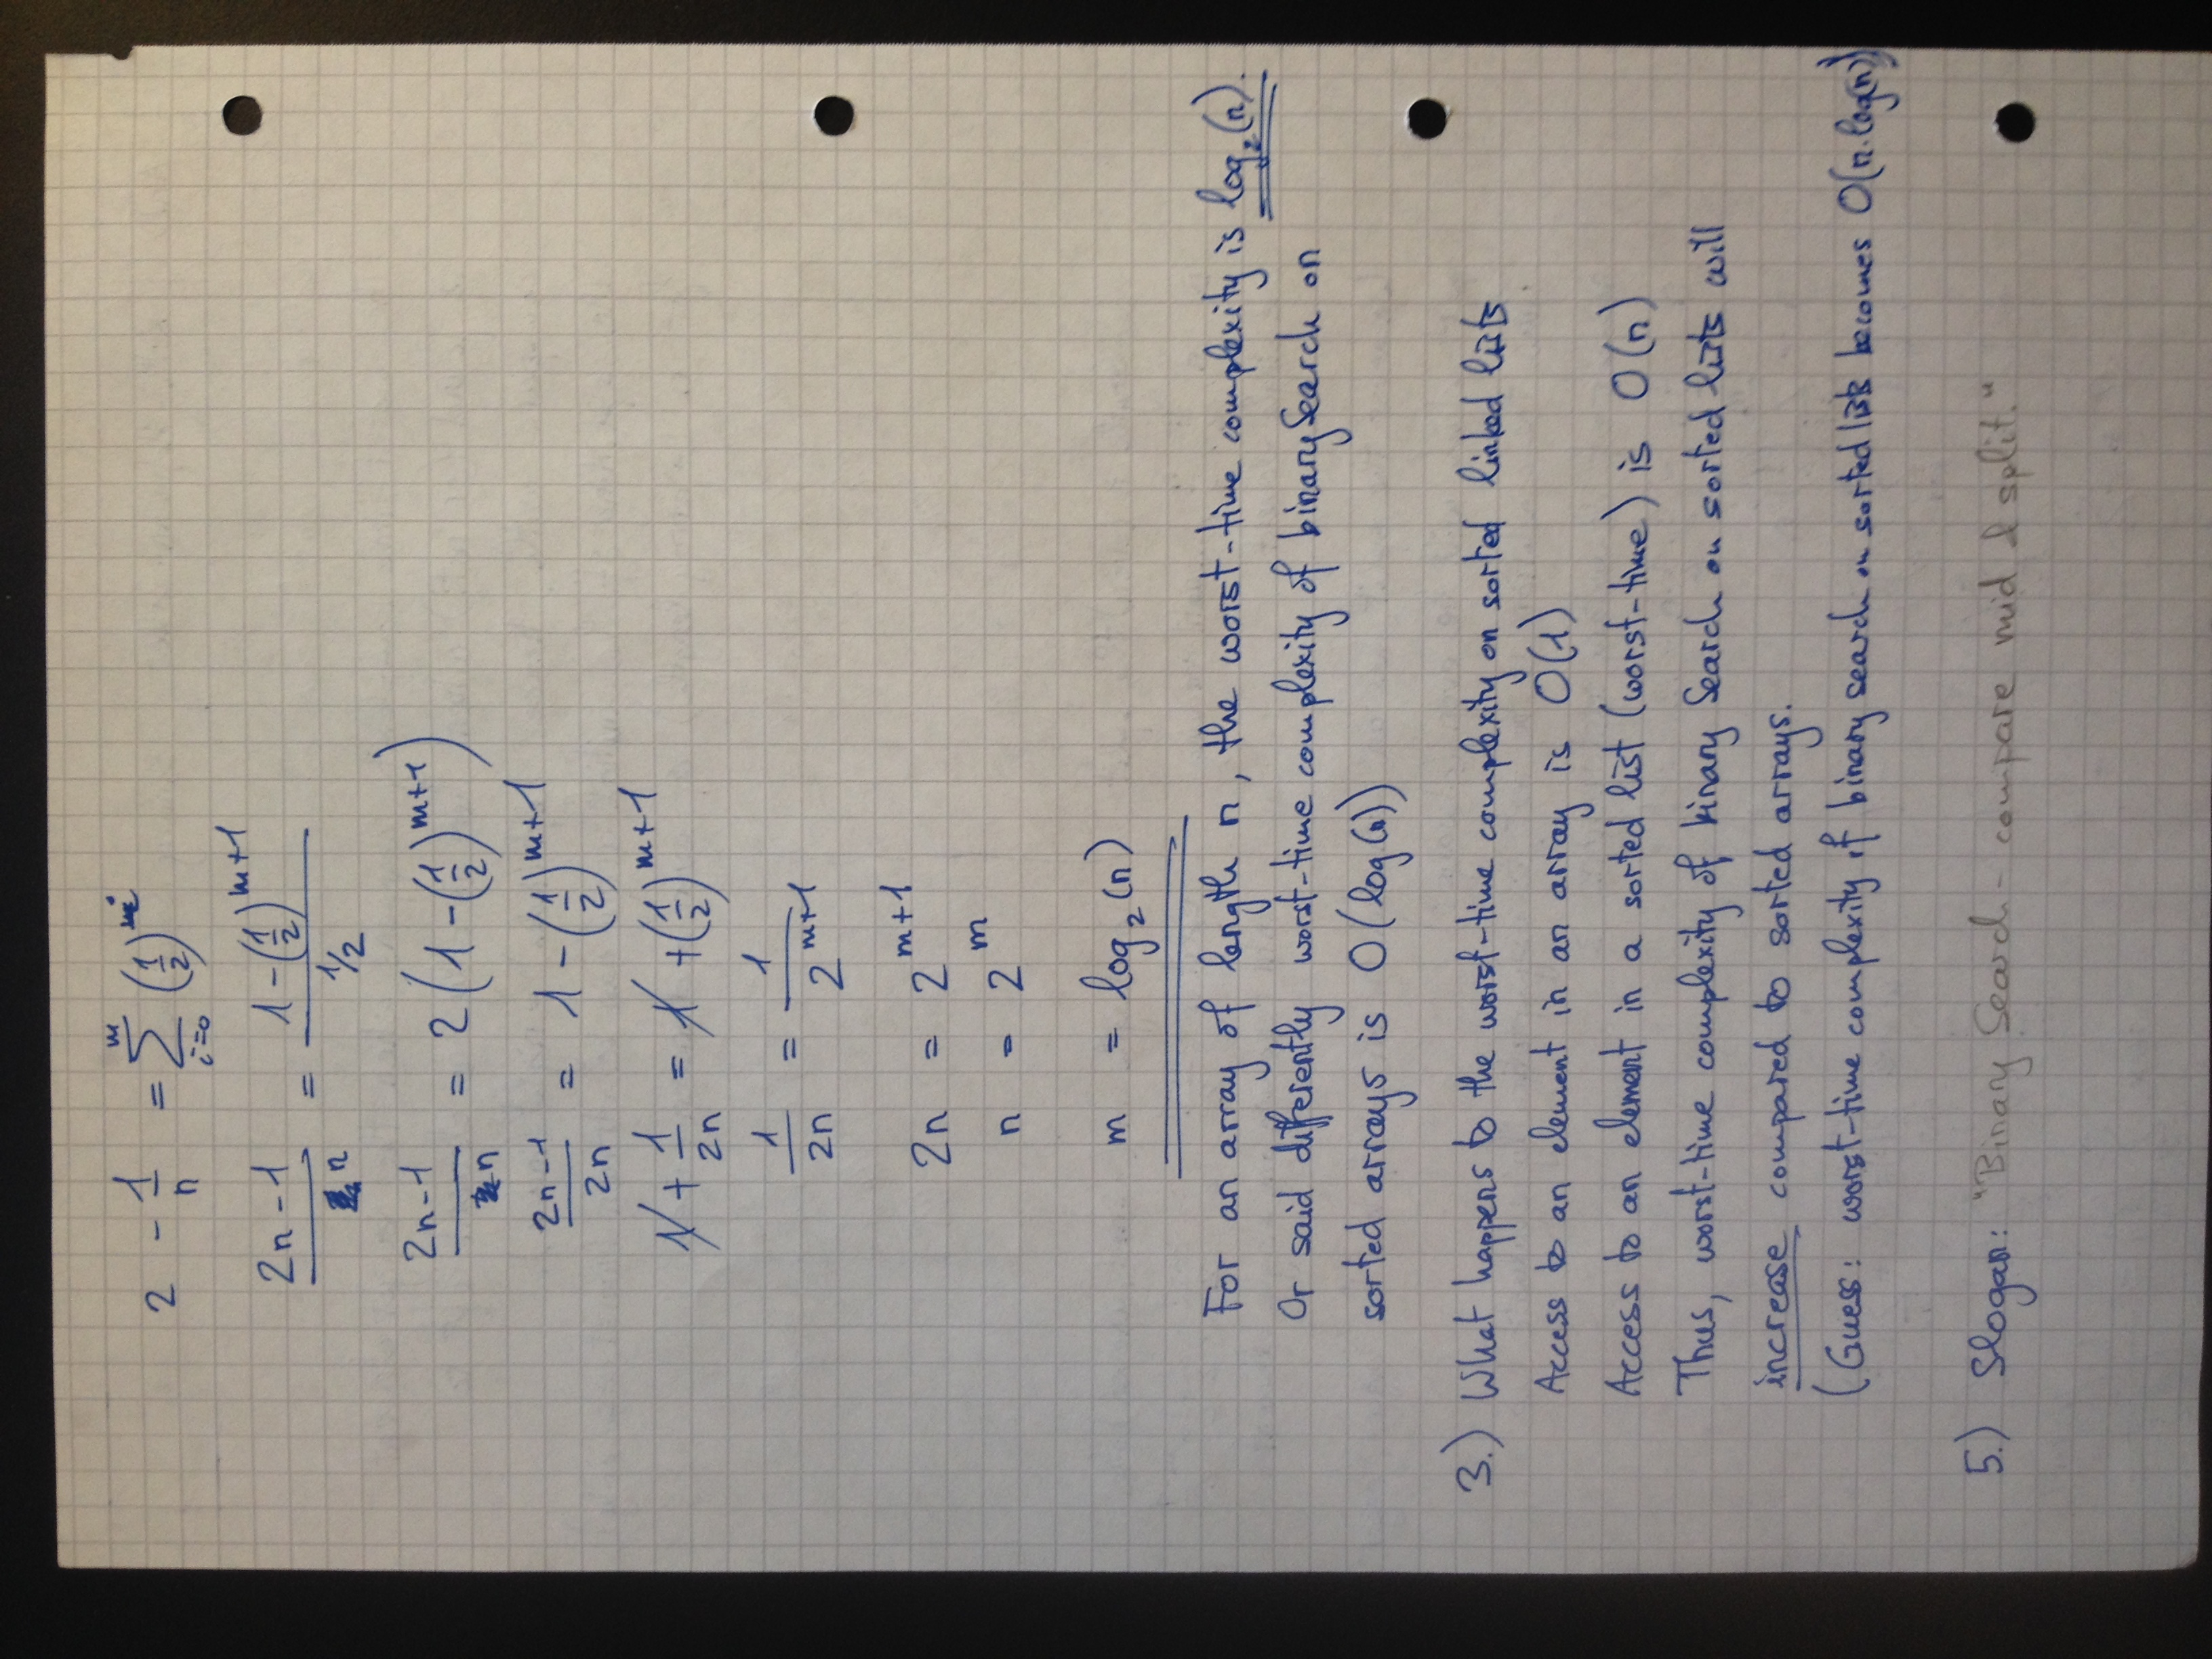 2 - 1/n = ∑_{i=0}^{m} (1/2)^i
(2n - 1)/n = (1 - (1/2)^{m+1})/(1/2)
(2n - 1)/n = 2(1 - (1/2)^{m+1})
(2n - 1)/2n = 1 - (1/2)^{m+1}
1 + 1/2n = 1 + (1/2)^{m+1}
1/2n = 1/2^{m+1}
2n = 2^{m+1}
n = 2^m
m = log₂(n)
For an array of length n, the worst-time complexity is log₂(n).
Or said differently worst-time complexity of binary Search on
sorted arrays is O(log(n))
3.) What happens to the worst-time complexity on sorted linked lists
Access to an element in an array is O(1)
Access to an element in a sorted list (worst-time) is O(n)
Thus, worst-time complexity of binary Search on sorted lists will
increase compared to sorted arrays.
(Guess: worst-time complexity of binary search on sorted lists becomes O(n·log(n))
5.) Slogan: "Binary Search - compare mid & split."